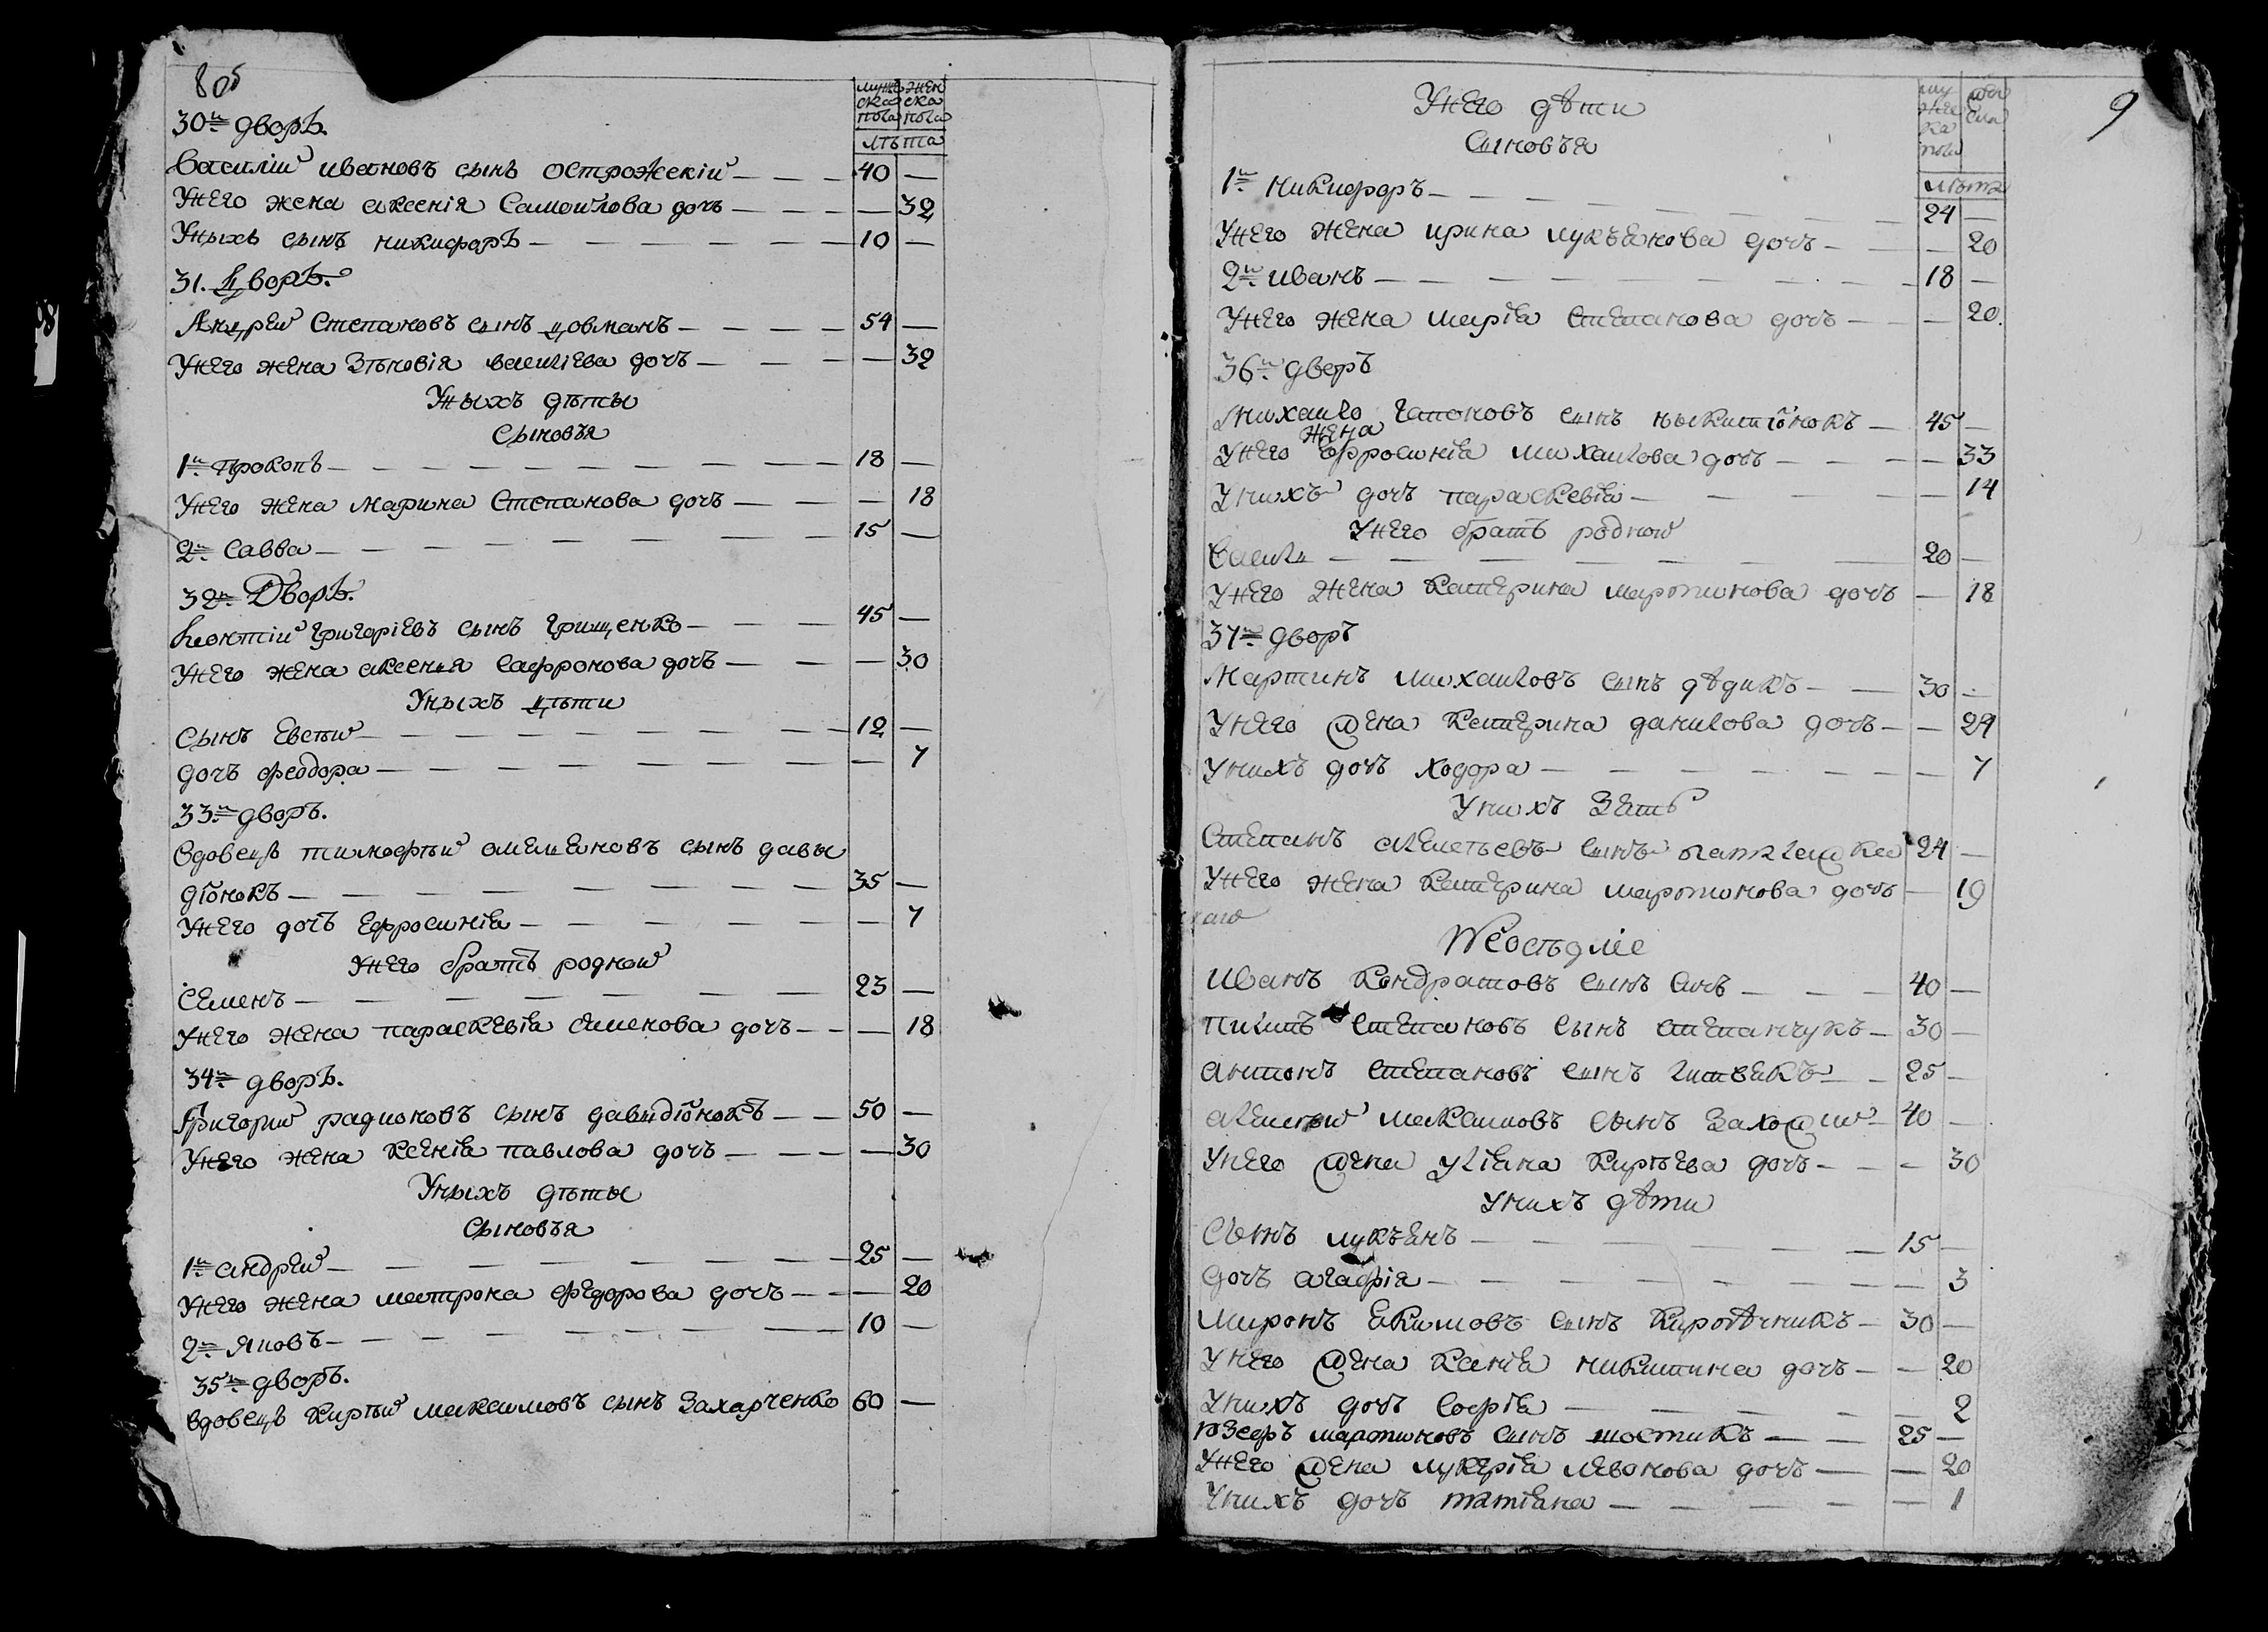 8об
мужеска пола женска пола
лѣта
30й дворъ.
Василии ивановъ сынъ острожскій — 40 —
Унего жена аксенія Самоилова дочъ — — 32
Уныхъ сынъ никифоръ — 10 —
31. Дворъ.
Андреи Степановъ сынъ цовманъ — 54 —
Унего жена Зѣновія василіева дочъ — — 32
Уныхъ дѣты
Сыновъя
1й прокопъ — 18 —
Унего жена Марина Степанова дочъ — — 18
2й Савва — 15 —
32й Дворъ.
Леонтіи григоріевъ сынъ грищенко — 45 —
Унего жена аксенія Сафронова дочъ — — 30
Уныхъ дѣти
Сынъ Евсѣи — 12 —
дочъ феодора — — 7
33й дворъ.
Вдовецъ тимофѣи омеляновъ сынъ давы
діонокъ — 35 —
Унего дочъ Ефросинія — — 7
Унего братъ роднои
Семенъ — 23 —
Унего жена параскевія Семенова дочъ — — 18
34й дворъ.
Григории радионовъ сынъ давыдіонокъ — 50 —
Унего жена ксенія павлова дочъ — — 30
Уныхъ дѣты
Сыновъя
1й андреи — 25 —
Унего жена матрона федорова дочъ — — 20
2й Яковъ — 10 —
35й дворъ.
вдовецъ Кирѣи максимовъ сынъ Захарченко 60 —
9
Унего дѣти
Сыновъя
мужеска пола
лѣта
1й никифоръ — 24 —
Унего жена ирина лукъянова дочъ — — 20
2й иванъ — 18 —
Унего жена марія Степанова дочъ — — 20
36й дворъ
Михаило Гапоновъ сынъ ныкитіонокъ — 45 —
жена
Унего Ефросинія михаилова дочъ — — 33
Унихъ дочъ параскевія — — 14
Унего братъ роднои
Василь — 20 —
Унего жена Катерина мартинова дочъ — 18
37й дворъ
Мартинъ михаиловъ сынъ дѣдикъ — 30 —
Унего жена Катерина данилова дочъ — — 29
Унихъ дочъ ходора — — 7
Унихъ Зять
Степанъ алексѣевъ сынъ 24 —
Унего жена Катерина мартинова дочъ — 19
Иванъ Кондратовъ сынъ — 40 —
пилипъ Степановъ сынъ степанчукъ — 30 —
антонъ Степановъ сынъ литвякъ — 25 —
алексѣи максимовъ сынъ Захожии — 40 —
Унего жена уліяна Кирѣева дочъ — — 30
Унихъ дѣти
Сынъ лукъянъ — 15 —
Дочъ агафія — — 3
Миронъ Екимовъ сынъ Кирпѣчникъ — 30 —
Унего жена Ксенія никитина дочъ — — 20
Унихъ дочъ Софія — — 2
мартиновъ сынъ шостикъ — 25 —
Унего жена лукерія левонова дочъ — — 20
Унихъ дочъ татіяна — — 1